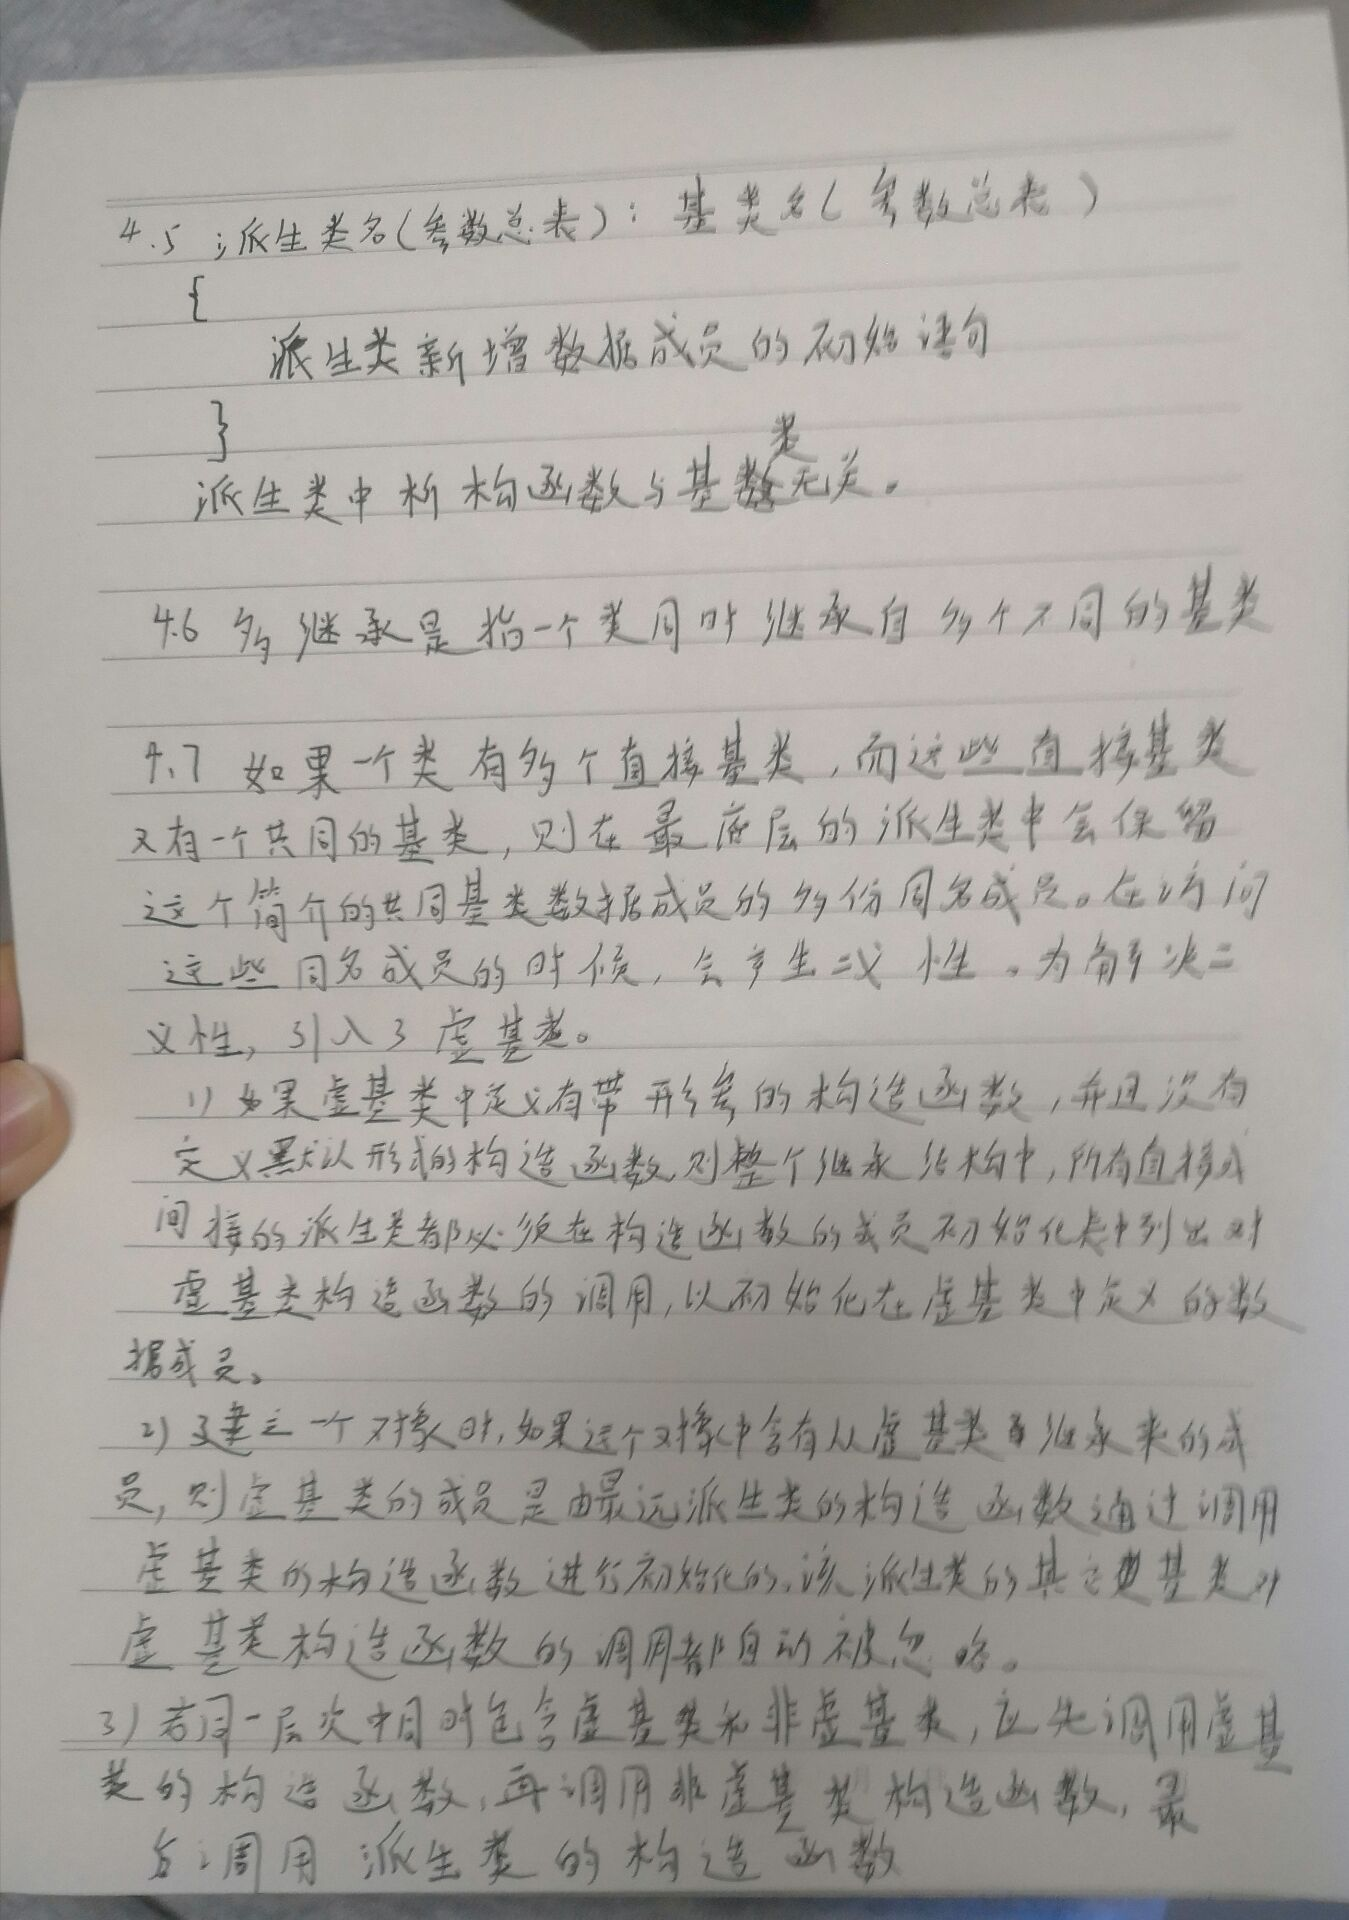 4.5 派生类名(参数总表):基类名(参数总表)
{
派生类新增数据成员的初始语句
}
类
派生类中析构函数与基数无关。
4.6 多继承是指一个类同时继承自多个不同的基类
4.7 如果一个类有多个直接基类,而这些直接基类
又有一个共同的基类,则在最底层的派生类中会保留
这个简介的共同基类数据成员的多份同名成员。在访问
这些同名成员的时候,会产生二义性。为解决二
义性,引入了虚基类。
1) 如果虚基类中定义有带形参的构造函数,并且没有
定义默认形式的构造函数,则整个继承结构中,所有直接或
间接的派生类都必须在构造函数的成员初始化表中列出对
虚基类构造函数的调用,以初始化在虚基类中定义的数
据成员。
2) 建立一个对像时,如果这个对像中含有从虚基类继承来的成
员,则虚基类的成员是由最远派生类的构造函数通过调用
虚基类的构造函数进行初始化的。该派生类的其它基类对
虚基类构造函数的调用都自动被忽略。
3) 若同一层次中同时包含虚基类和非虚基类,应先调用虚基
类的构造函数,再调用非虚基类构造函数,最
后调用派生类的构造函数